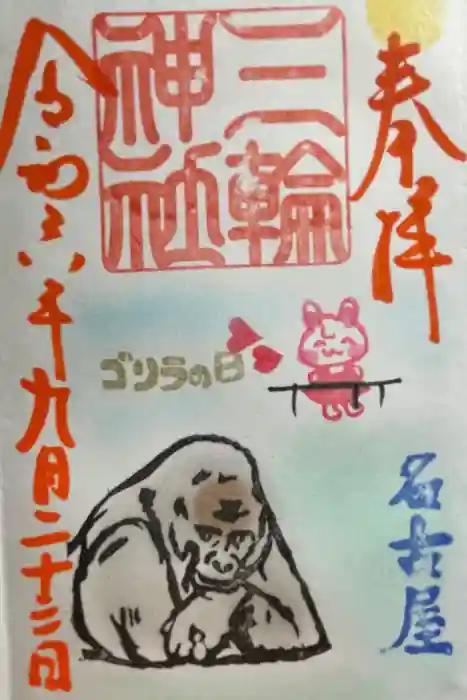 奉拝
名古屋
三輪
神社
ゴリラの日
令和六年九月二十三日